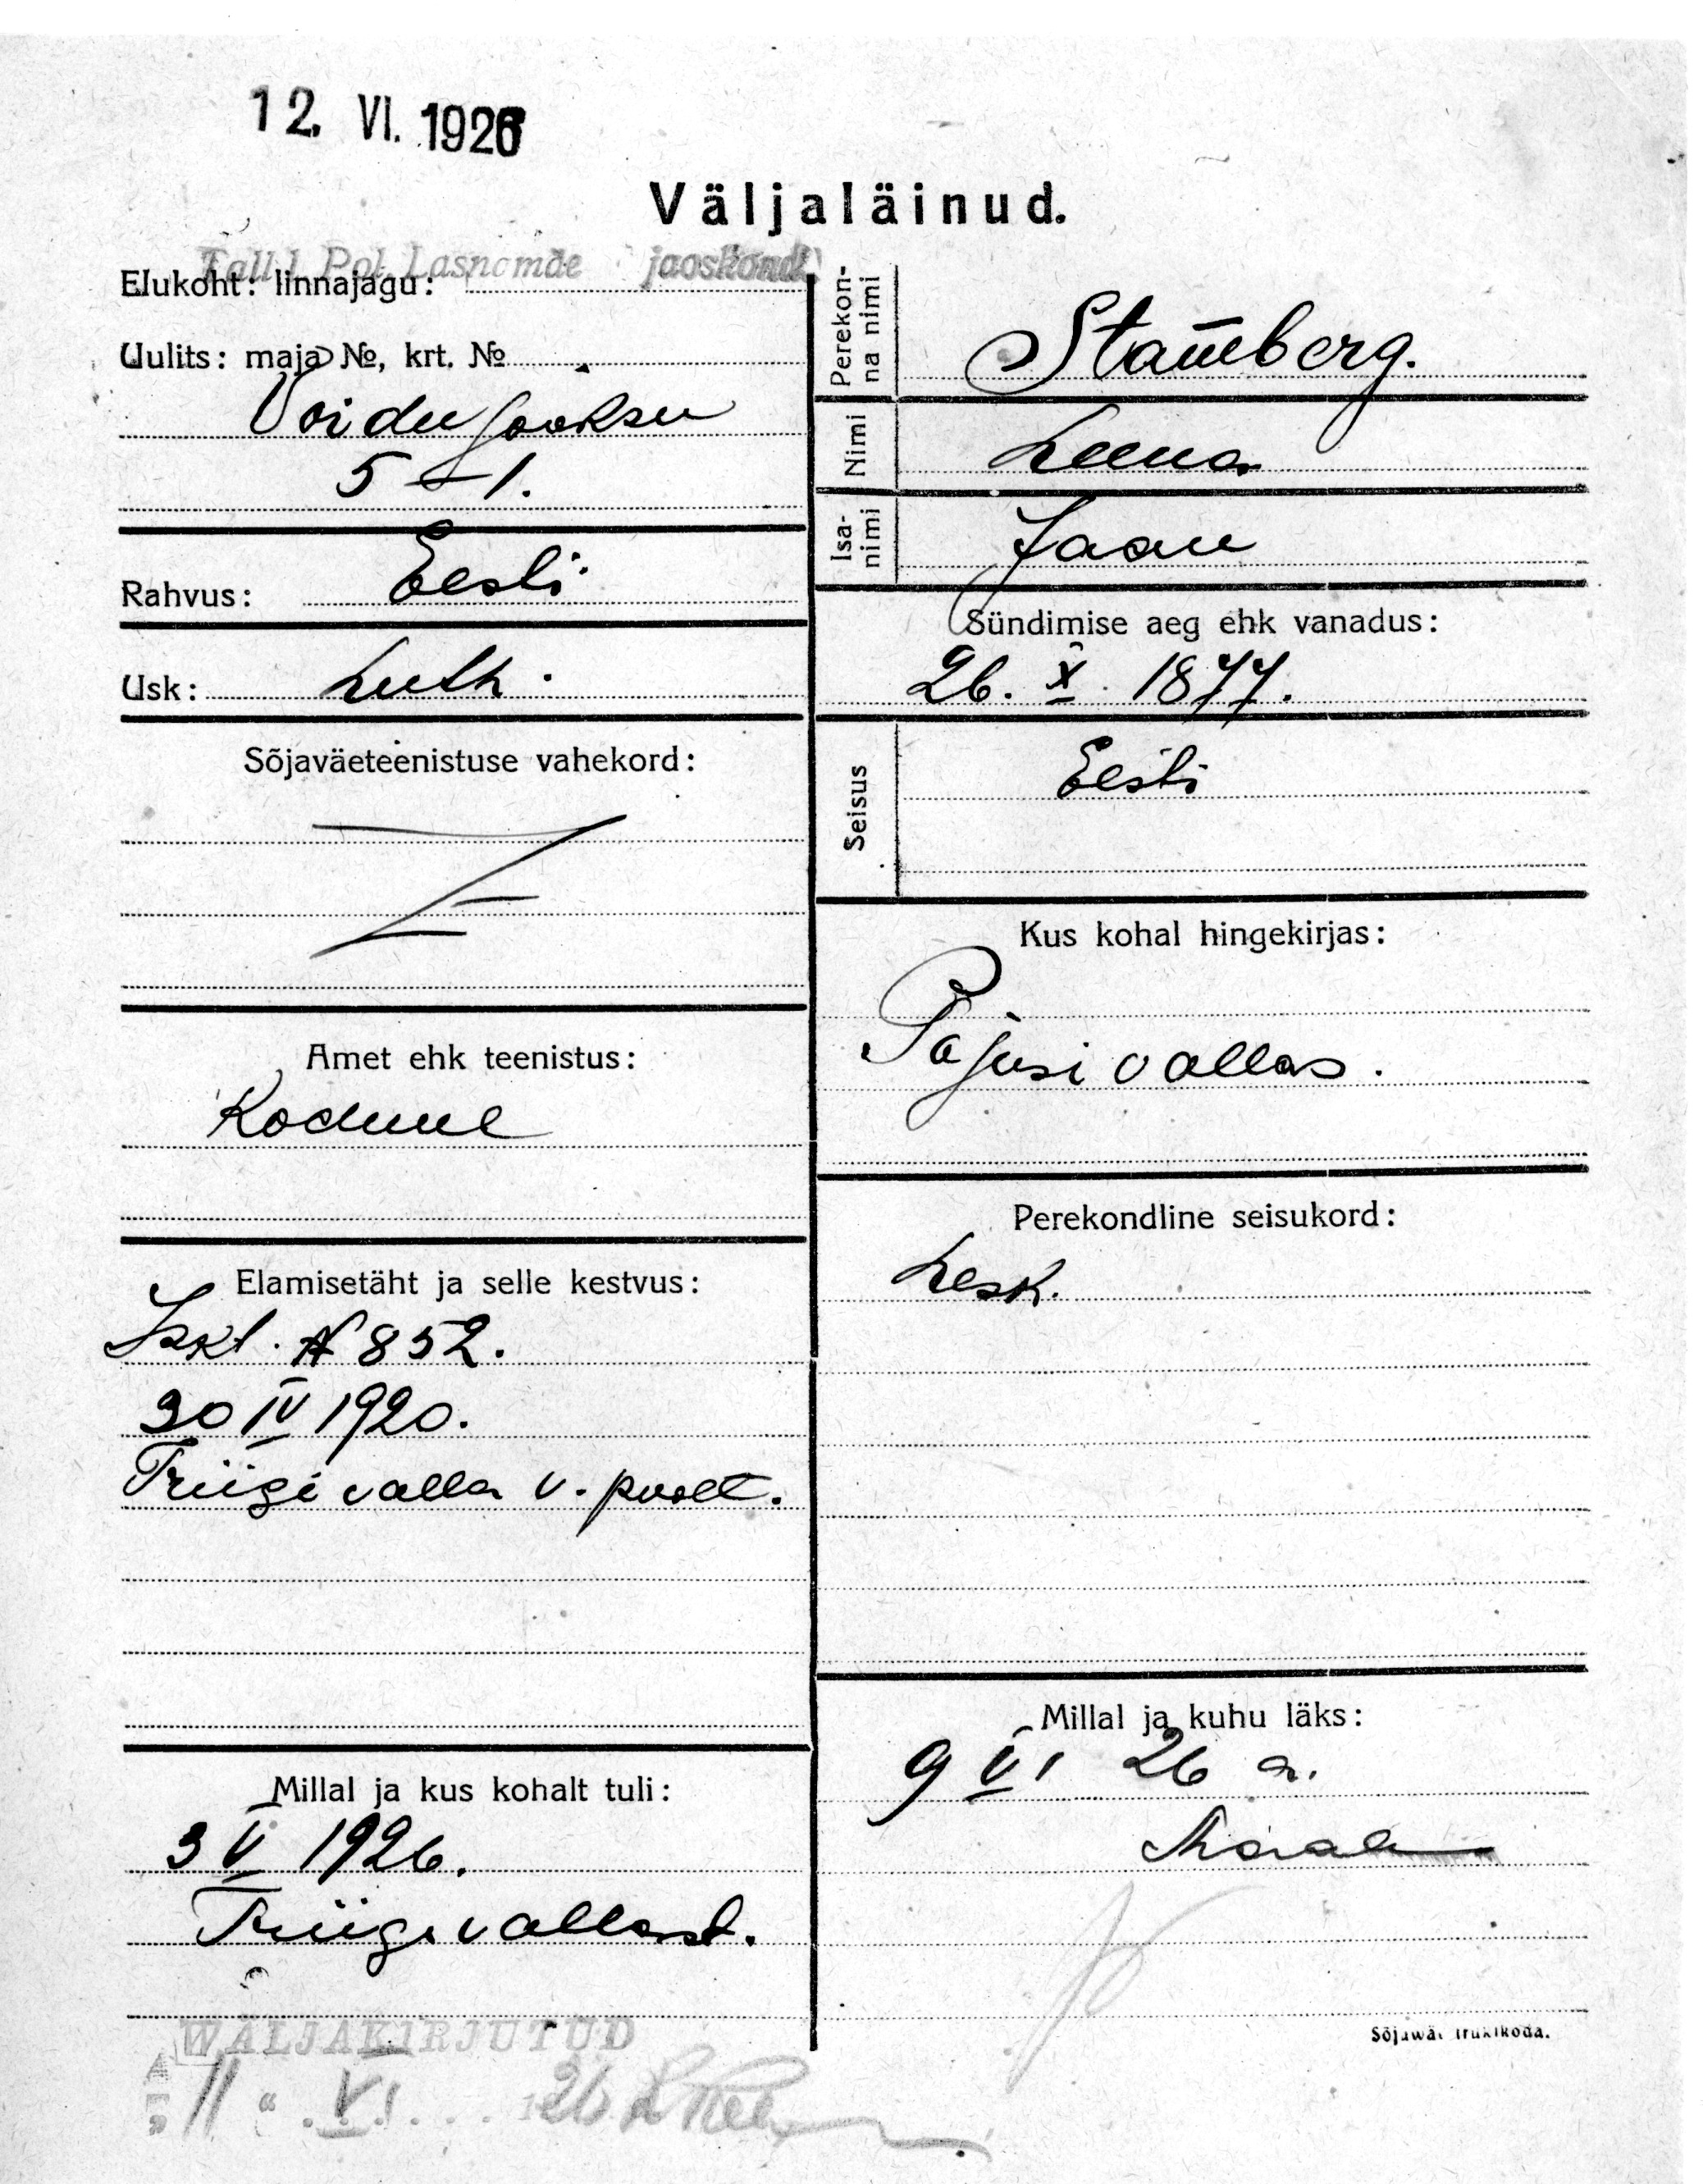 12. VI. 1926
Väljaläinud.
Tall. 1 Pol. Lasnamäe jaoskond
Elukoht: linnajagu:
Uulits: maja №, krt. №
Voidujooksu
5 – 1.
Rahvus: Eesti
Usk: Luth.
Sõjaväeteenistuse vahekord:
Amet ehk teenistus:
Kodune
Elamisetäht ja selle kestvus:
Iskt. № 852.
30 IV 1920.
Triigi valla v. poolt.
Millal ja kus kohalt tuli:
3 V 1926.
Triigi vallast.
WÄLJAKIRJUTUD
"11" VI 26
Perekonna nimi
Stam̄berg.
Nimi
Leena
Isanimi
Jaan
Sündimise aeg ehk vanadus:
26. X. 1877.
Seisus
Eesti
Kus kohal hingekirjas:
Pajusi vallas.
Perekondline seisukord:
Lesk.
Millal ja kuhu läks:
9 VI 26 a.
Sõjawäe trükikoda.